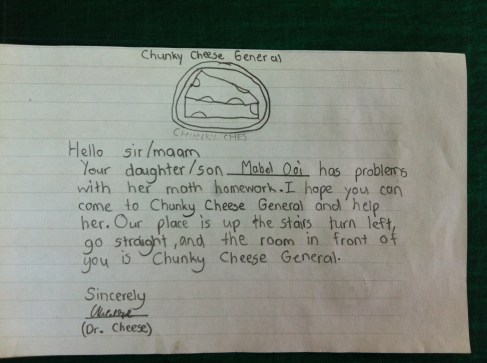 Chunky Cheese General
CHUNKY CHES
Hello sir/maam
Your daughter/son Mabel Ooi has problems
with her math homework. I hope you can
come to Chunky Cheese General and help
her. Our place is up the stairs turn left,
go straight, and the room in front of
you is Chunky Cheese General.
Sincerely
(Dr. Cheese)